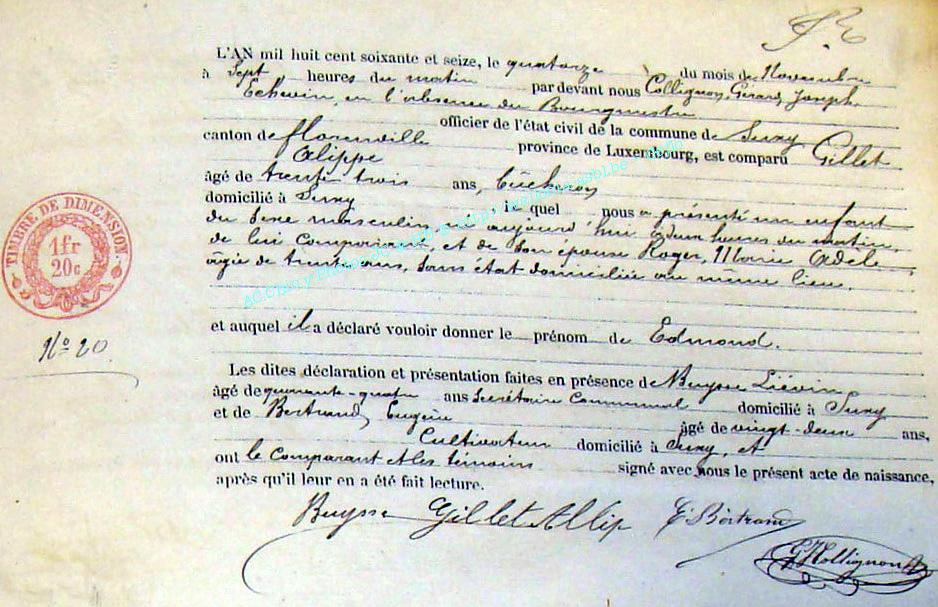 L'AN mil huit cent soixante et seize, le quatorze du mois de Novembre
à Sept heures du matin par devant nous Collignon, Gérard, Joseph
Echevin, en l'absence du Bourgmestre
officier de l'état civil de la commune de Suxy
canton de florenville province de Luxembourg, est comparu Gillet
Alippe
âgé de trente trois ans, bûcheron
domicilié à Suxy le quel nous a présenté un enfant
du sexe masculin, né aujourd'hui à deux heures du matin,
de lui comparant, et de son épouse Roger, Marie Adèle
âgée de trente ans, sans état domiciliée au même lieu.
TIMBRE DE DIMENSION.
1fr
20c
No 20
et auquel il a déclaré vouloir donner le prénom de Edmond.
Les dites déclaration et présentation faites en présence de Buysse Liévin
âgé de quarante-quatre ans Secrétaire Communal domicilié à Suxy
et de Bertrand, Eugène âgé de vingt-deux ans,
Cultivateur domicilié à Suxy, et
ont le Comparant et les témoins signé avec nous le présent acte de naissance,
après qu'il leur en a été fait lecture.
Buysse Gillet Allip E. Bertrand
GJCollignon